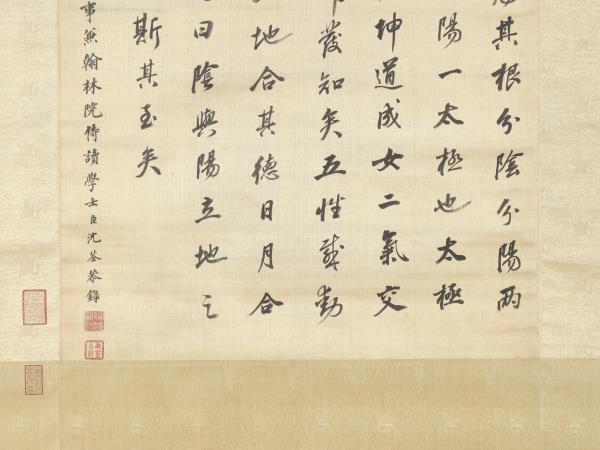 其根分陰分陽兩
陽一太極也太極
坤道成女二氣交
發知矣五性感動
地合其德日月合
曰陰與陽立地之
斯其至矣
事兼翰林院侍讀學士臣沈荃恭錄